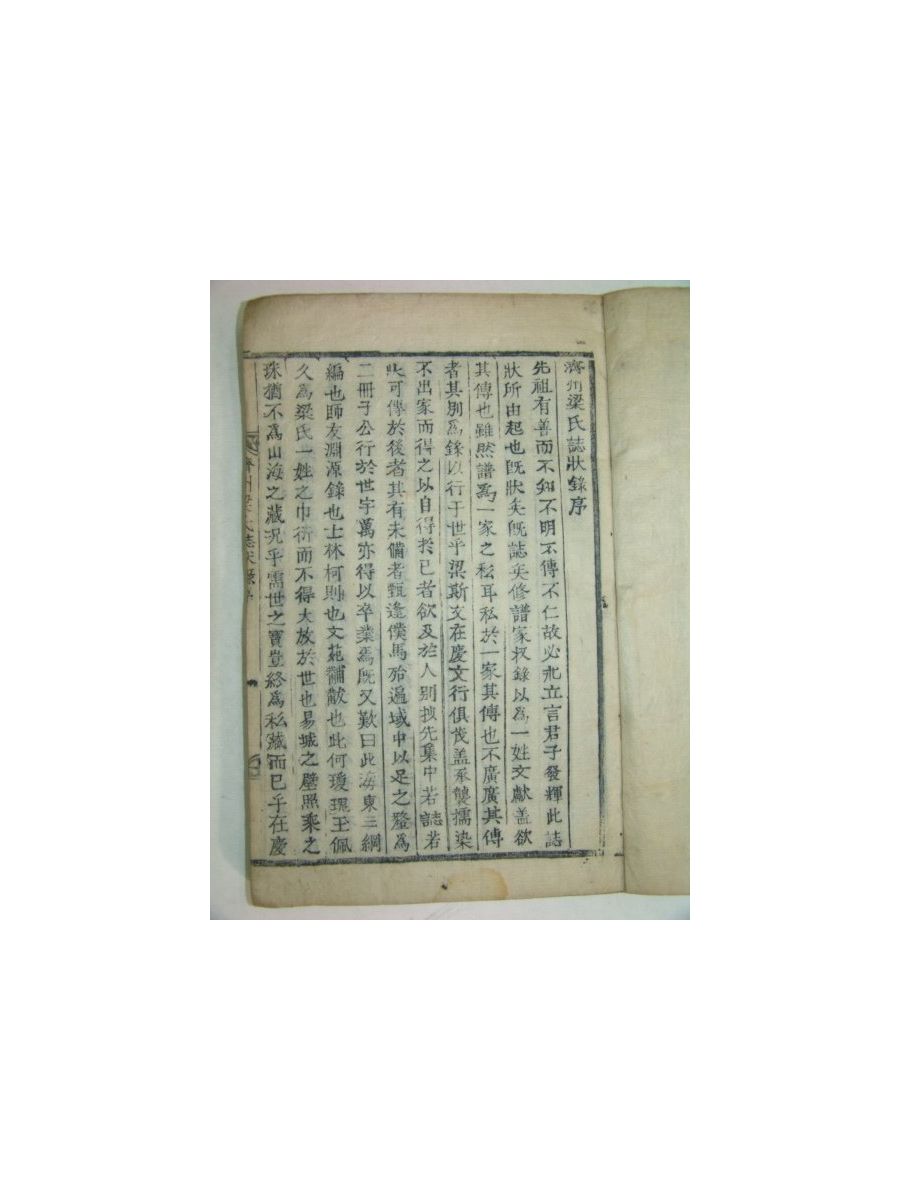 濟州梁氏誌狀錄序
先祖有善而不知不明不傳不仁故必求立言君子發輝此誌
狀所由起也旣狀矣旣誌矣修譜家收錄以為一姓文獻盖欲
其傳也雖然譜為一家之私耳私於一家其傳也不廣廣其傳
者其別為錄以行于世乎梁斯文在慶文行俱茂盖承襲擩染
不出家而得之以自得於已者欲及於人別搜先集中若誌若
狀可傳於後者其有未備者甄逢僕馬殆遍域中以足之釐為
二冊子公行於世宇萬亦得以卒業焉旣又歎曰此海東三綱
編也師友淵源錄也士林柯則也文苑黼黻也此何瓊琚玉佩
久為梁氏一姓之巾衍而不得大放於世也易城之璧照乘之
珠猶不為山海之藏況乎需世之寶豈終為私藏而已乎在慶
濟州梁氏誌狀錄序